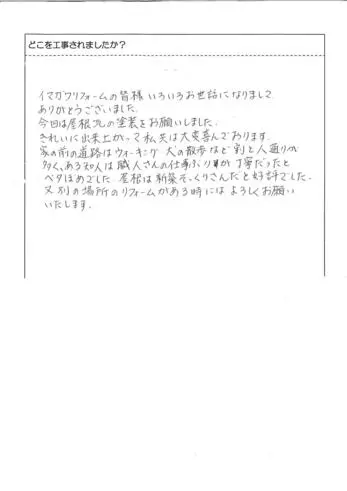 どこを工事されましたか？
イマガワリフォームの皆様 いろいろお世話になりまして
ありがとうございました。
今日は屋根瓦の塗装をお願いしました。
きれいに出来上がって私共は大変喜んでおります。
家の前の道路はウォーキング 犬の散歩など割と人通りが
多く、ある知人は職人さんの仕事ぶりが丁寧だったと
ベタほめでした 屋根は新築そっくりさんだと好評でした。
又別の場所のリフォームがある時には よろしくお願い
いたします。